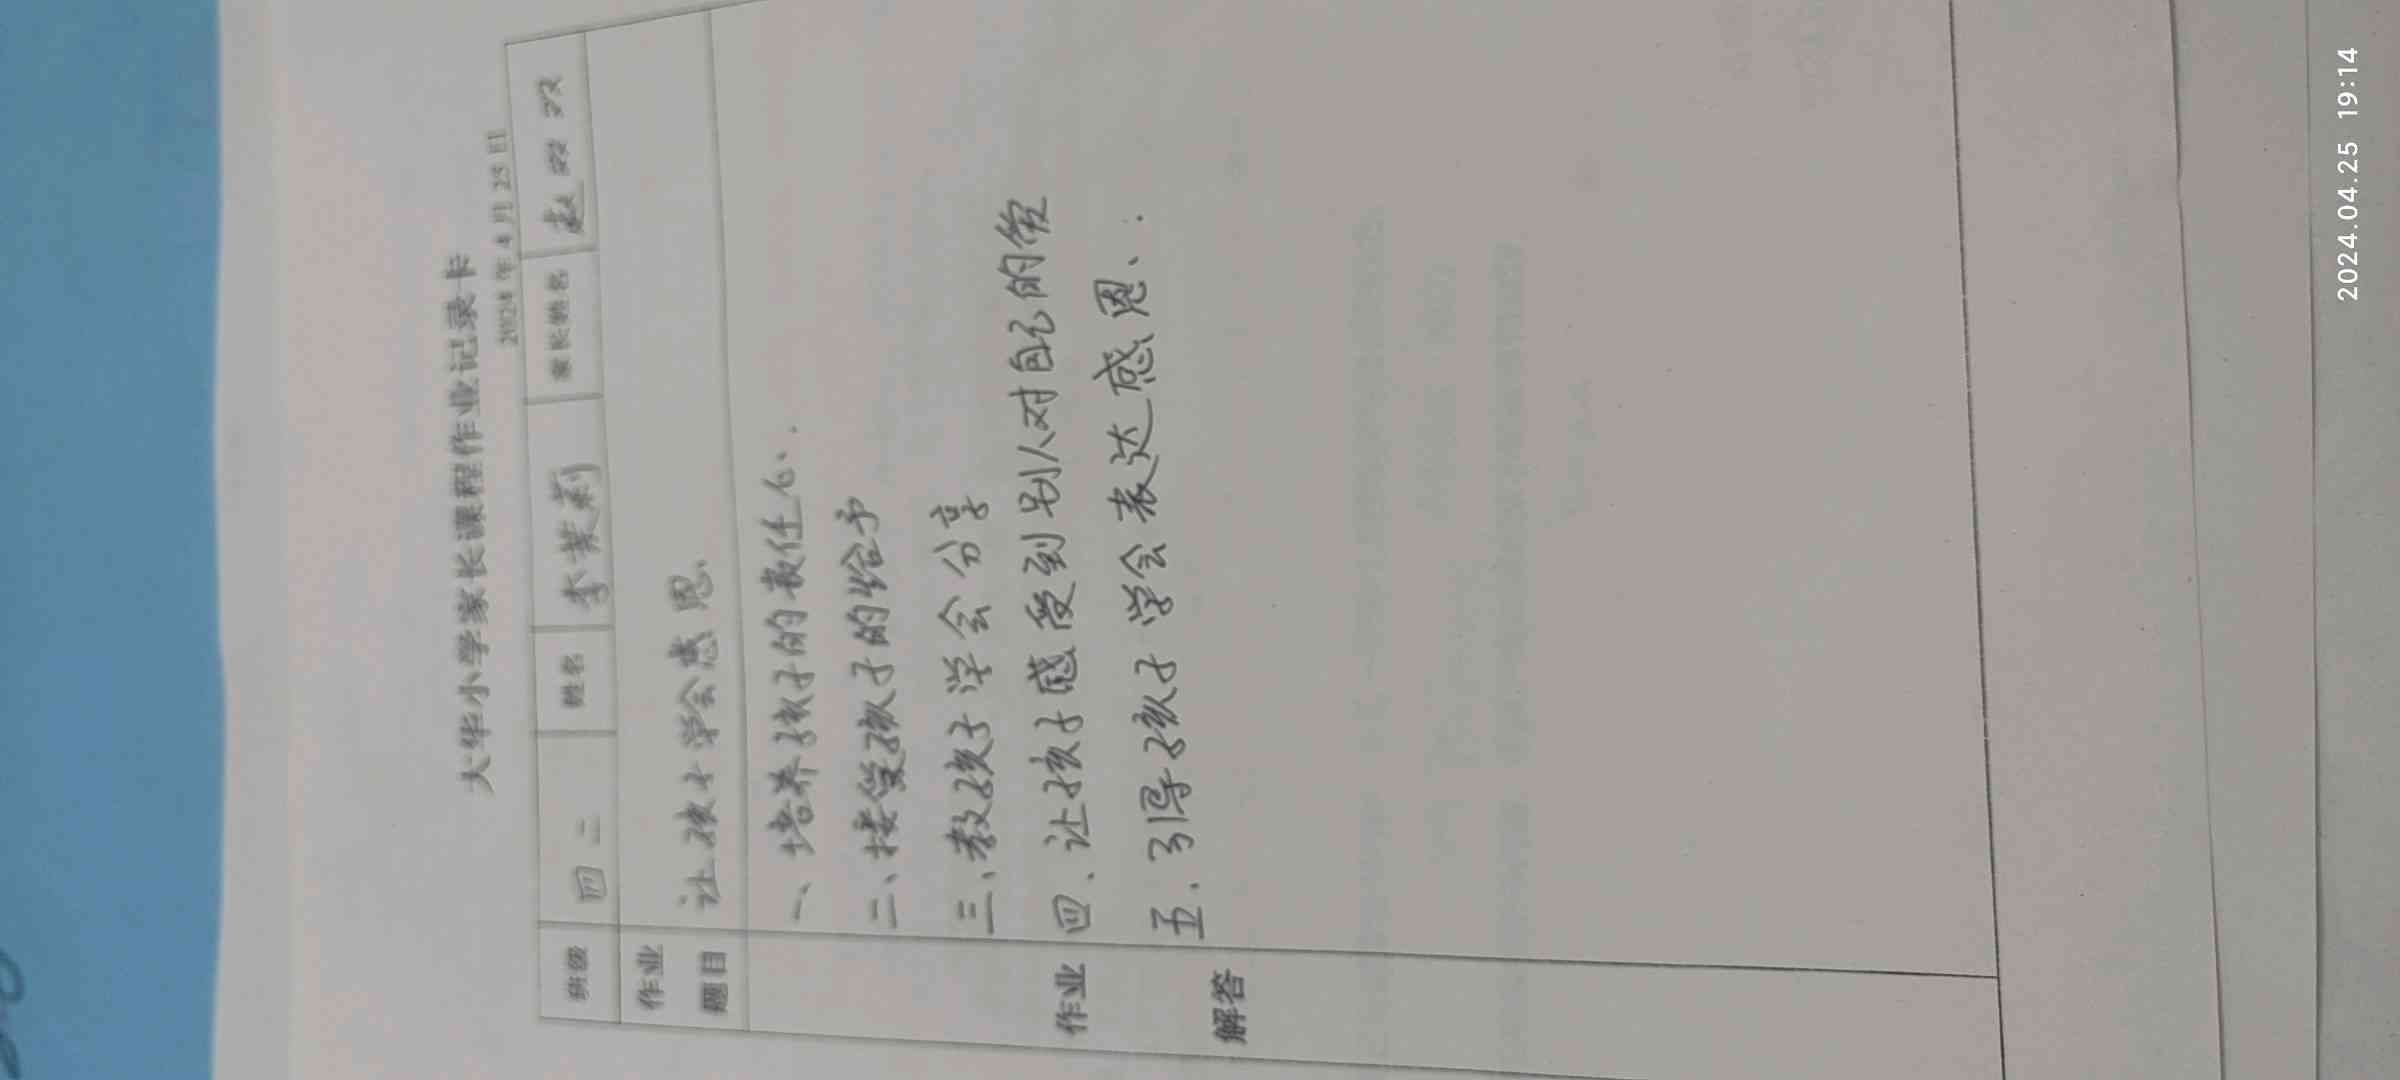 大华小学家长课程作业记录卡
2024 年 4 月 25 日
班级 四 二 姓名 李茉莉 家长姓名 赵
作业
题目 让孩子学会感恩、
一、培养孩子的责任心、.
二、接受孩子的给予
三、教孩子学会分享
四．让孩子感受到别人对自己的爱
五．引导孩子学会表达感恩、.
作业
解答
2024.04.25 19:14